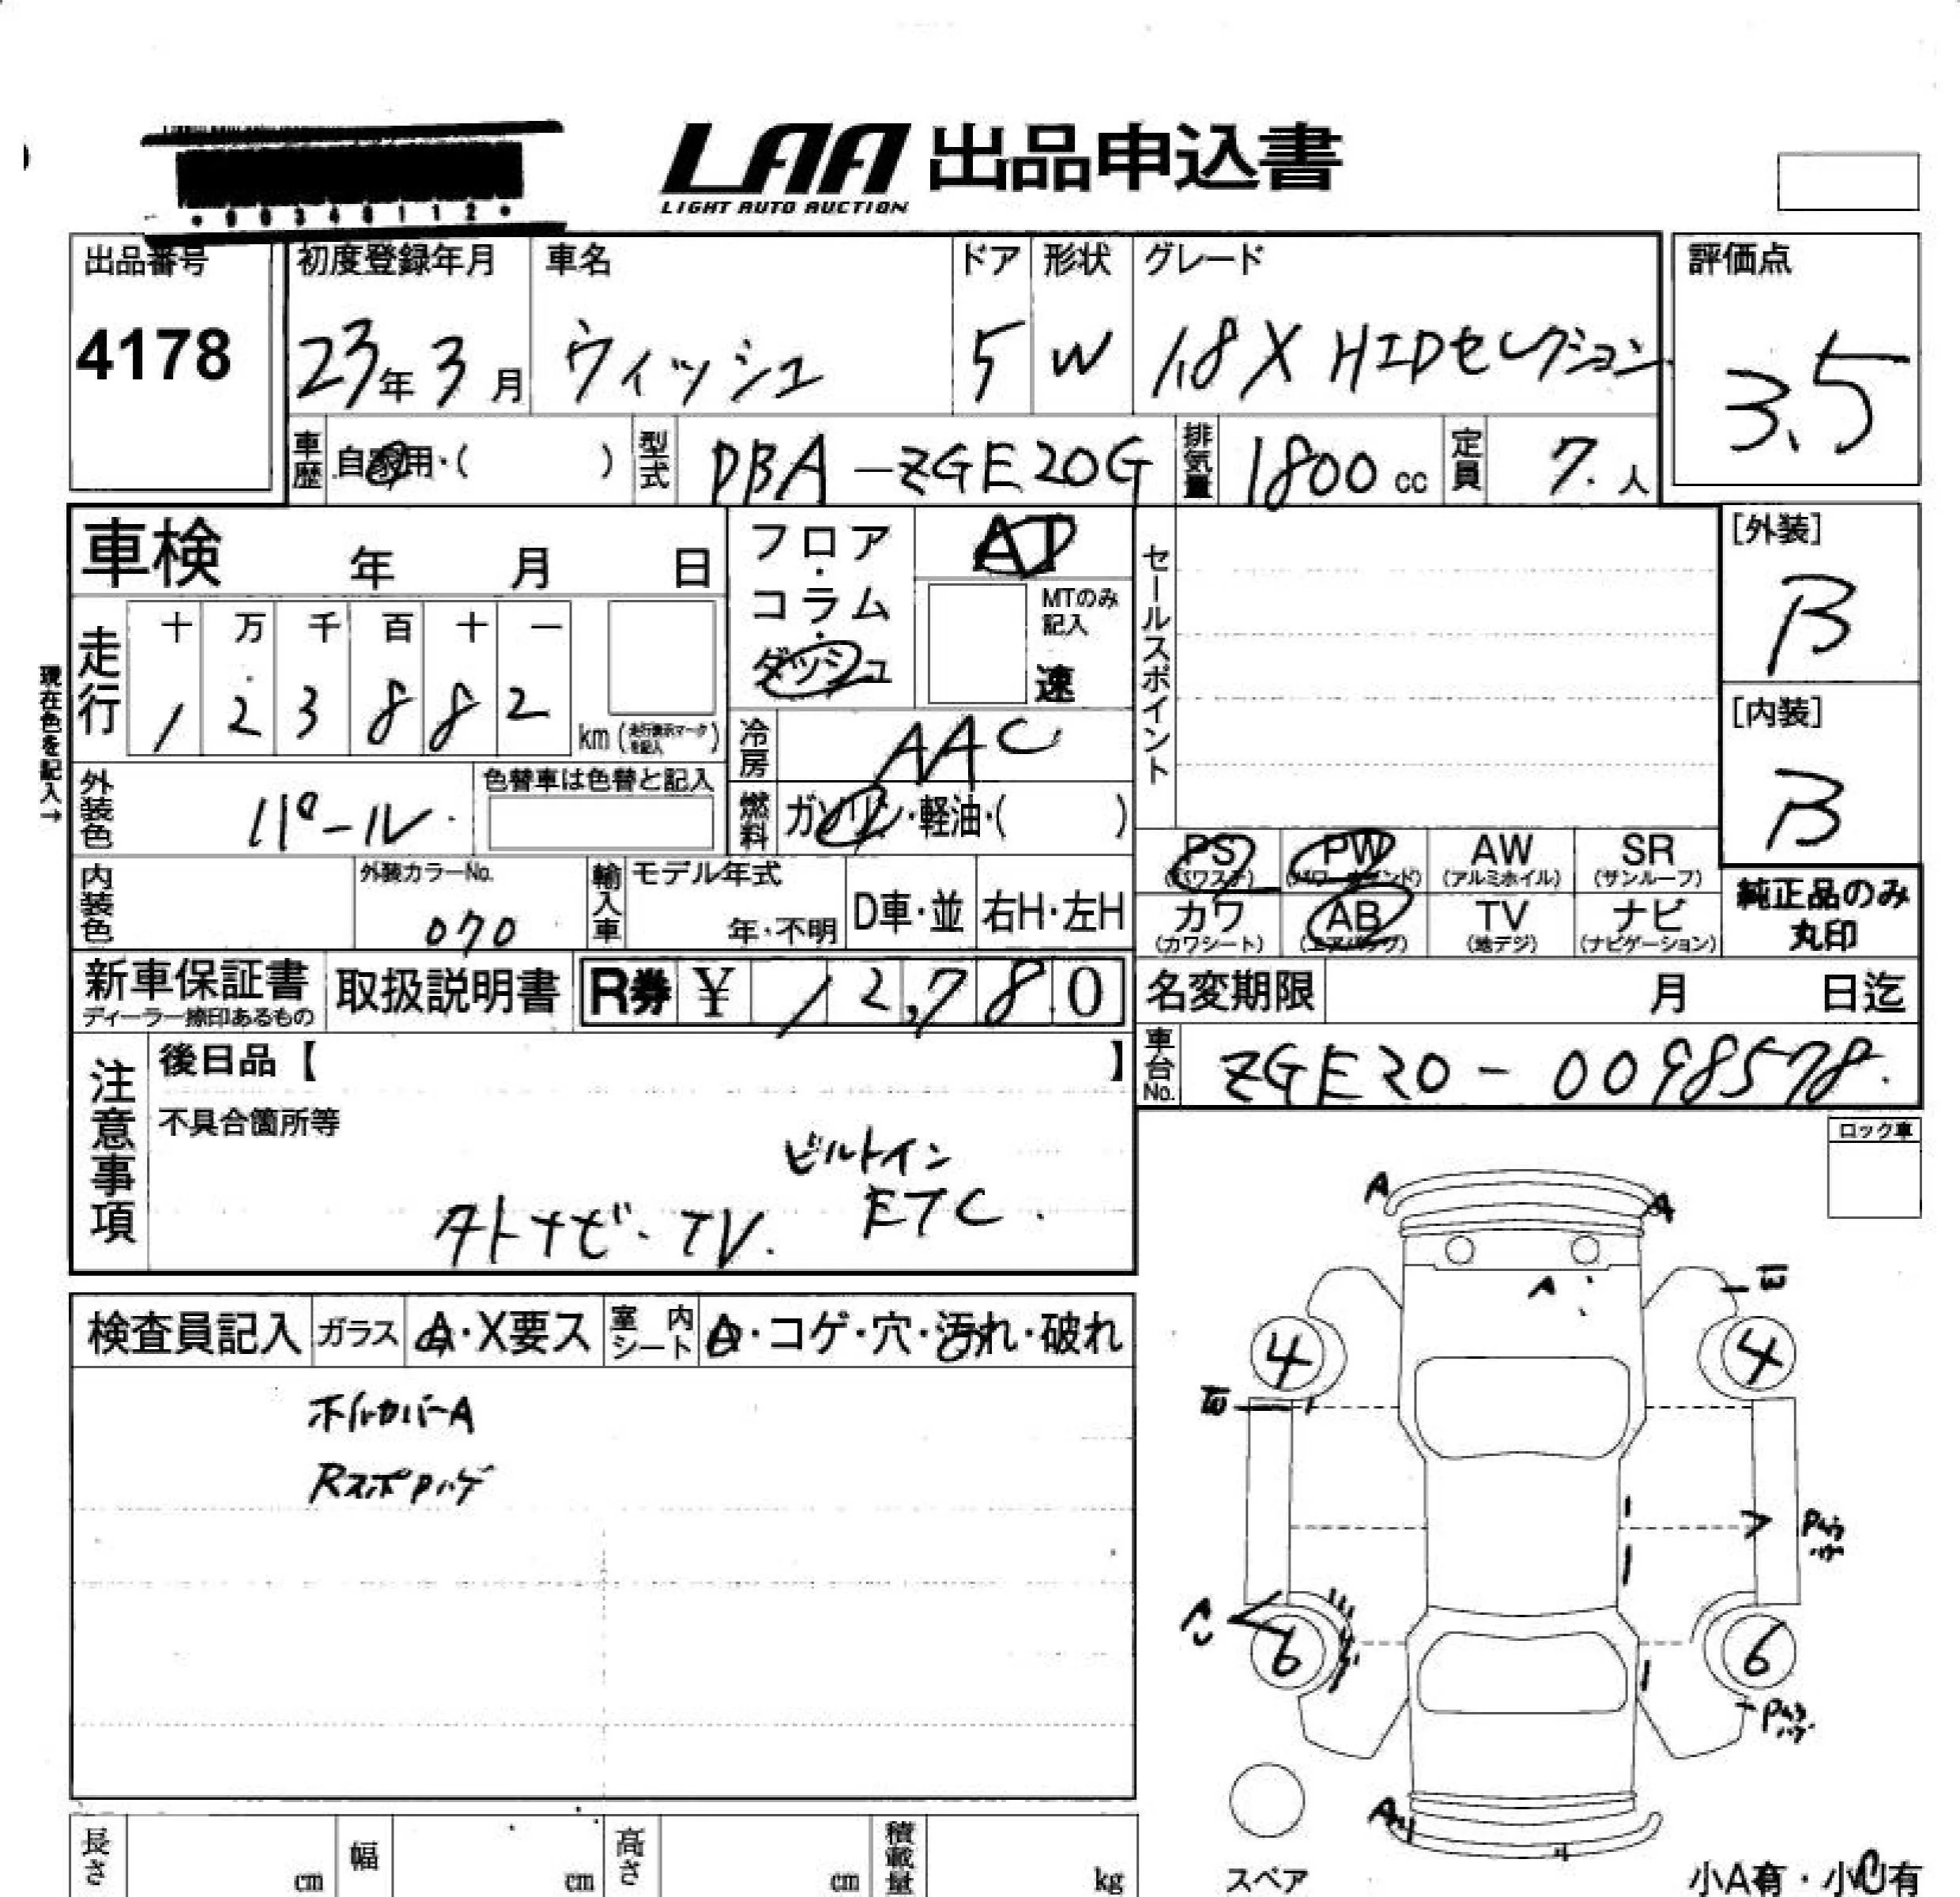 LAA 出品申込書
LIGHT AUTO AUCTION
出品番号 初度登録年月 車名 ドア 形状 グレード 評価点
4178 23年 3月 ウィッシュ 5 W 1.8X HIDセレクション 3.5
車歴 自家用・( ) 型式 DBA-ZGE20G 排気量 1800 cc 定員 7. 人
車検 年 月 日
フロア・コラム・ダッシュ AT
MTのみ記入
速
セールスポイント
[外装]
B
[内装]
B
現在色を記入→
走行 十 万 千 百 十 一
1 2 3 8 8 2 km (走行表示マークを記入)
冷房 AAC
外装色 パール 色替車は色替と記入
燃料 ガソリン・軽油・( )
PS PW AW SR
(パワステ) (パワーウインド) (アルミホイル) (サンルーフ)
カワ AB TV ナビ
(カワシート) (エアバッグ) (地デジ) (ナビゲーション)
純正品のみ
丸印
内装色 外装カラーNo. 070 輸入車 モデル年式 年・不明 D車・並 右H・左H
新車保証書 取扱説明書 R券 ¥ 12,780
ディーラー捺印あるもの
名変期限 月 日迄
車台No. ZGE20-0098578.
注意事項
後日品【 】
不具合箇所等
ビルトイン
ETC.
タトナビ・TV.
ロック車
検査員記入 ガラス A・X要ス 室内シート A・コゲ・穴・汚れ・破れ
ホイルカバーA
Rスポイラハゲ
A A
A
4 4
6 6
A
スペア
小A有・小U有
長さ cm 幅 cm 高さ cm 積載量 kg